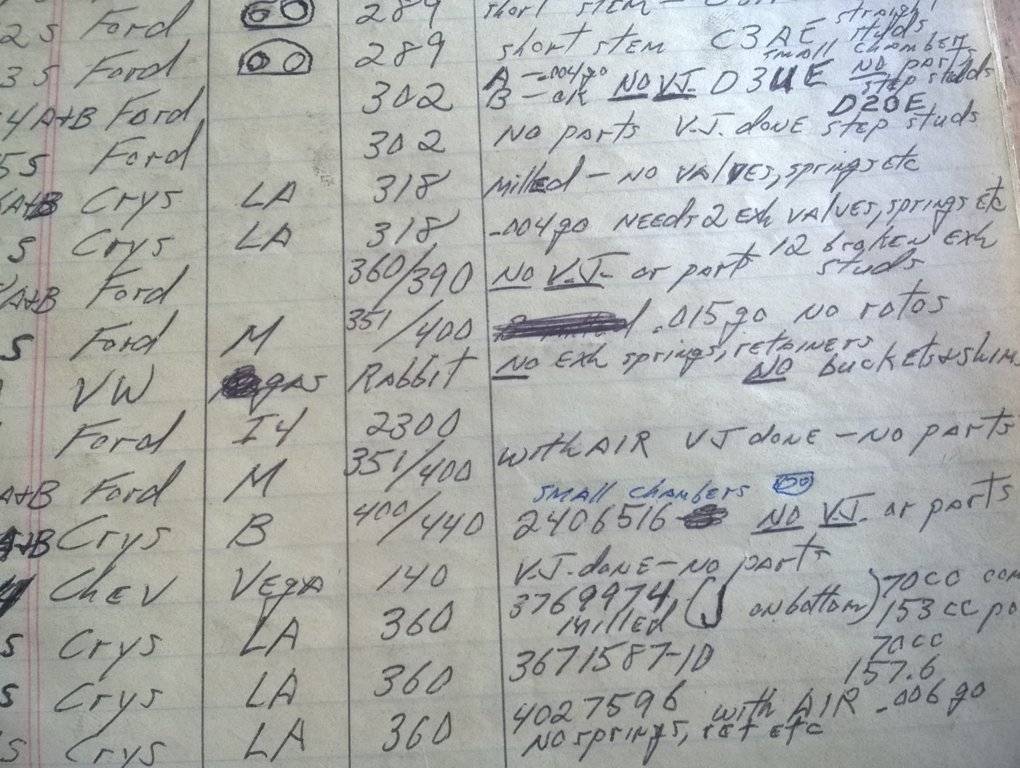 2S Ford 289 short stem –
straight
3S Ford 289 short stem C3AE studs
small chambers
4 A+B Ford 302 A -.004 go NO VJ. D3UE NO parts
B - ok step studs
D20E
5S Ford 302 NO parts V.J. done step studs
A+B Crys LA 318 Milled – NO VALVES, springs etc
S Crys LA 318 -.004 go NEEDS 2 Exh VALVES, springs etc
A+B Ford 360/390 NO V.J. or part 12 broken exh
studs
S Ford M 351/400 .015 go No rotos
VW gas Rabbit NO Exh springs, retainers
NO buckets+shim
Ford I4 2300 with AIR VJ done – NO parts
A+B Ford M 351/400 SMALL chambers
A+B Crys B 400/440 2406516 NO VJ. or parts
Chev VEGA 140 V.J. done – NO parts
S Crys LA 360 3769974 (J on bottom) 70cc com
Milled 153cc po
S Crys LA 360 3671587-1D 70cc
157.6
S Crys LA 360 4027596 with AIR -.006 go
NO springs, ret etc